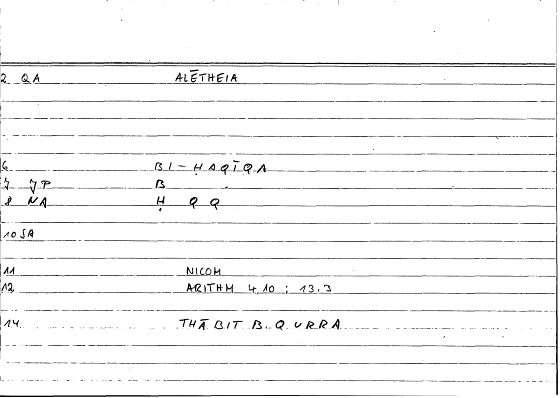 2 QA ALĒTHEIA
6 BI-ḤAQĪQA
7 JP B
8 NA Ḥ Q Q
10 SA
11 NICOM
12 ARITHM 4,10 : 13.3
14 THĀBIT B. QURRA